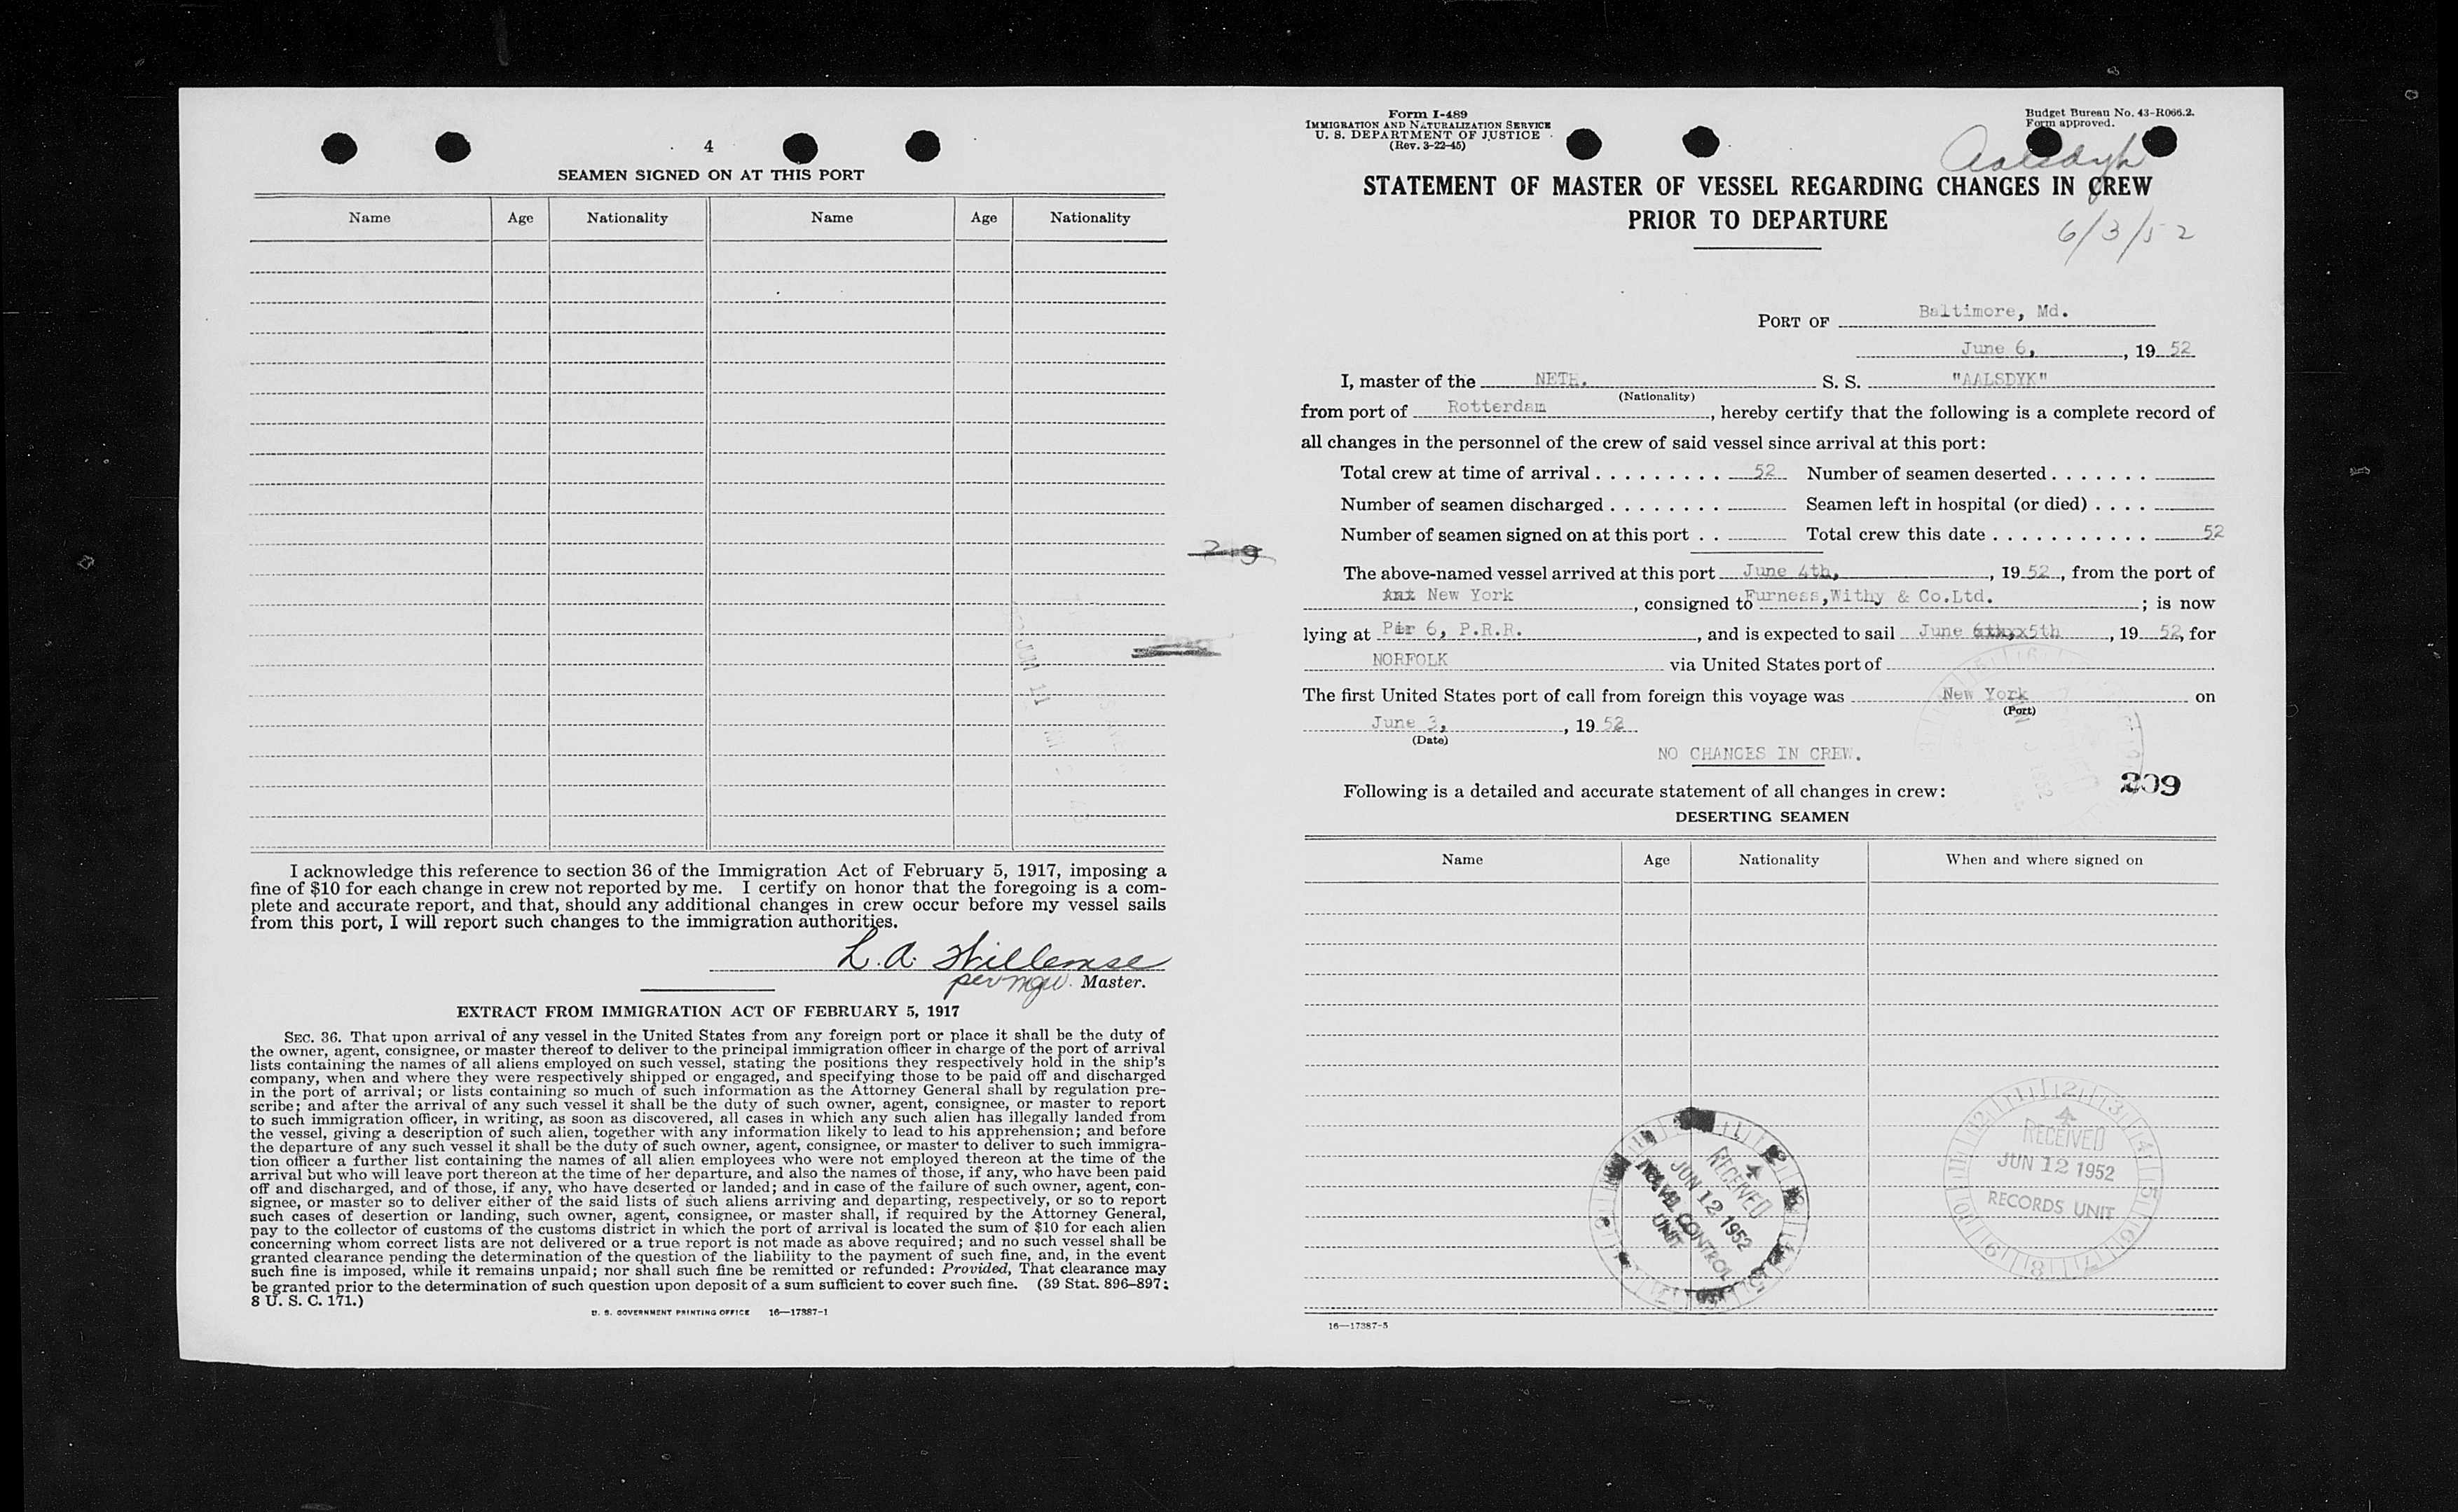 4
SEAMEN SIGNED ON AT THIS PORT
Name Age Nationality Name Age Nationality
I acknowledge this reference to section 36 of the Immigration Act of February 5, 1917, imposing a
fine of $10 for each change in crew not reported by me. I certify on honor that the foregoing is a com-
plete and accurate report, and that, should any additional changes in crew occur before my vessel sails
from this port, I will report such changes to the immigration authorities.
L. A. Willemse
per mgw. Master.
EXTRACT FROM IMMIGRATION ACT OF FEBRUARY 5, 1917
SEC. 36. That upon arrival of any vessel in the United States from any foreign port or place it shall be the duty of
the owner, agent, consignee, or master thereof to deliver to the principal immigration officer in charge of the port of arrival
lists containing the names of all aliens employed on such vessel, stating the positions they respectively hold in the ship's
company, when and where they were respectively shipped or engaged, and specifying those to be paid off and discharged
in the port of arrival; or lists containing so much of such information as the Attorney General shall by regulation pre-
scribe; and after the arrival of any such vessel it shall be the duty of such owner, agent, consignee, or master to report
to such immigration officer, in writing, as soon as discovered, all cases in which any such alien has illegally landed from
the vessel, giving a description of such alien, together with any information likely to lead to his apprehension; and before
the departure of any such vessel it shall be the duty of such owner, agent, consignee, or master to deliver to such immigra-
tion officer a further list containing the names of all alien employees who were not employed thereon at the time of the
arrival but who will leave port thereon at the time of her departure, and also the names of those, if any, who have been paid
off and discharged, and of those, if any, who have deserted or landed; and in case of the failure of such owner, agent, con-
signee, or master so to deliver either of the said lists of such aliens arriving and departing, respectively, or so to report
such cases of desertion or landing, such owner, agent, consignee, or master shall, if required by the Attorney General,
pay to the collector of customs of the customs district in which the port of arrival is located the sum of $10 for each alien
concerning whom correct lists are not delivered or a true report is not made as above required; and no such vessel shall be
granted clearance pending the determination of the question of the liability to the payment of such fine, and, in the event
such fine is imposed, while it remains unpaid; nor shall such fine be remitted or refunded: Provided, That clearance may
be granted prior to the determination of such question upon deposit of a sum sufficient to cover such fine. (39 Stat. 896–897;
8 U. S. C. 171.)
U. S. GOVERNMENT PRINTING OFFICE 16—17387-1
Form I-489
IMMIGRATION AND NATURALIZATION SERVICE
U. S. DEPARTMENT OF JUSTICE
(Rev. 3-22-45)
Budget Bureau No. 43-R066.2.
Form approved.
Aalsdyk
STATEMENT OF MASTER OF VESSEL REGARDING CHANGES IN CREW
PRIOR TO DEPARTURE
6/3/52
PORT OF Baltimore, Md.
June 6, , 19 52
I, master of the NETH. S. S. "AALSDYK"
(Nationality)
from port of Rotterdam , hereby certify that the following is a complete record of
all changes in the personnel of the crew of said vessel since arrival at this port:
Total crew at time of arrival . . . . . . . . . 52 Number of seamen deserted . . . . . . .
Number of seamen discharged . . . . . . . . Seamen left in hospital (or died) . . . .
Number of seamen signed on at this port . . Total crew this date . . . . . . . . . . . 52
The above-named vessel arrived at this port June 4th, , 19 52 , from the port of
New York , consigned to Furness,Withy & Co.Ltd. ; is now
lying at Pier 6, P.R.R. , and is expected to sail June 5th , 19 52, for
NORFOLK via United States port of
The first United States port of call from foreign this voyage was New York on
(Port)
June 3, , 19 52
(Date)
NO CHANGES IN CREW.
209
Following is a detailed and accurate statement of all changes in crew:
DESERTING SEAMEN
Name Age Nationality When and where signed on
RECEIVED
JUN 12 1952
CONTROL
UNIT
RECEIVED
JUN 12 1952
RECORDS UNIT
16—17387-5